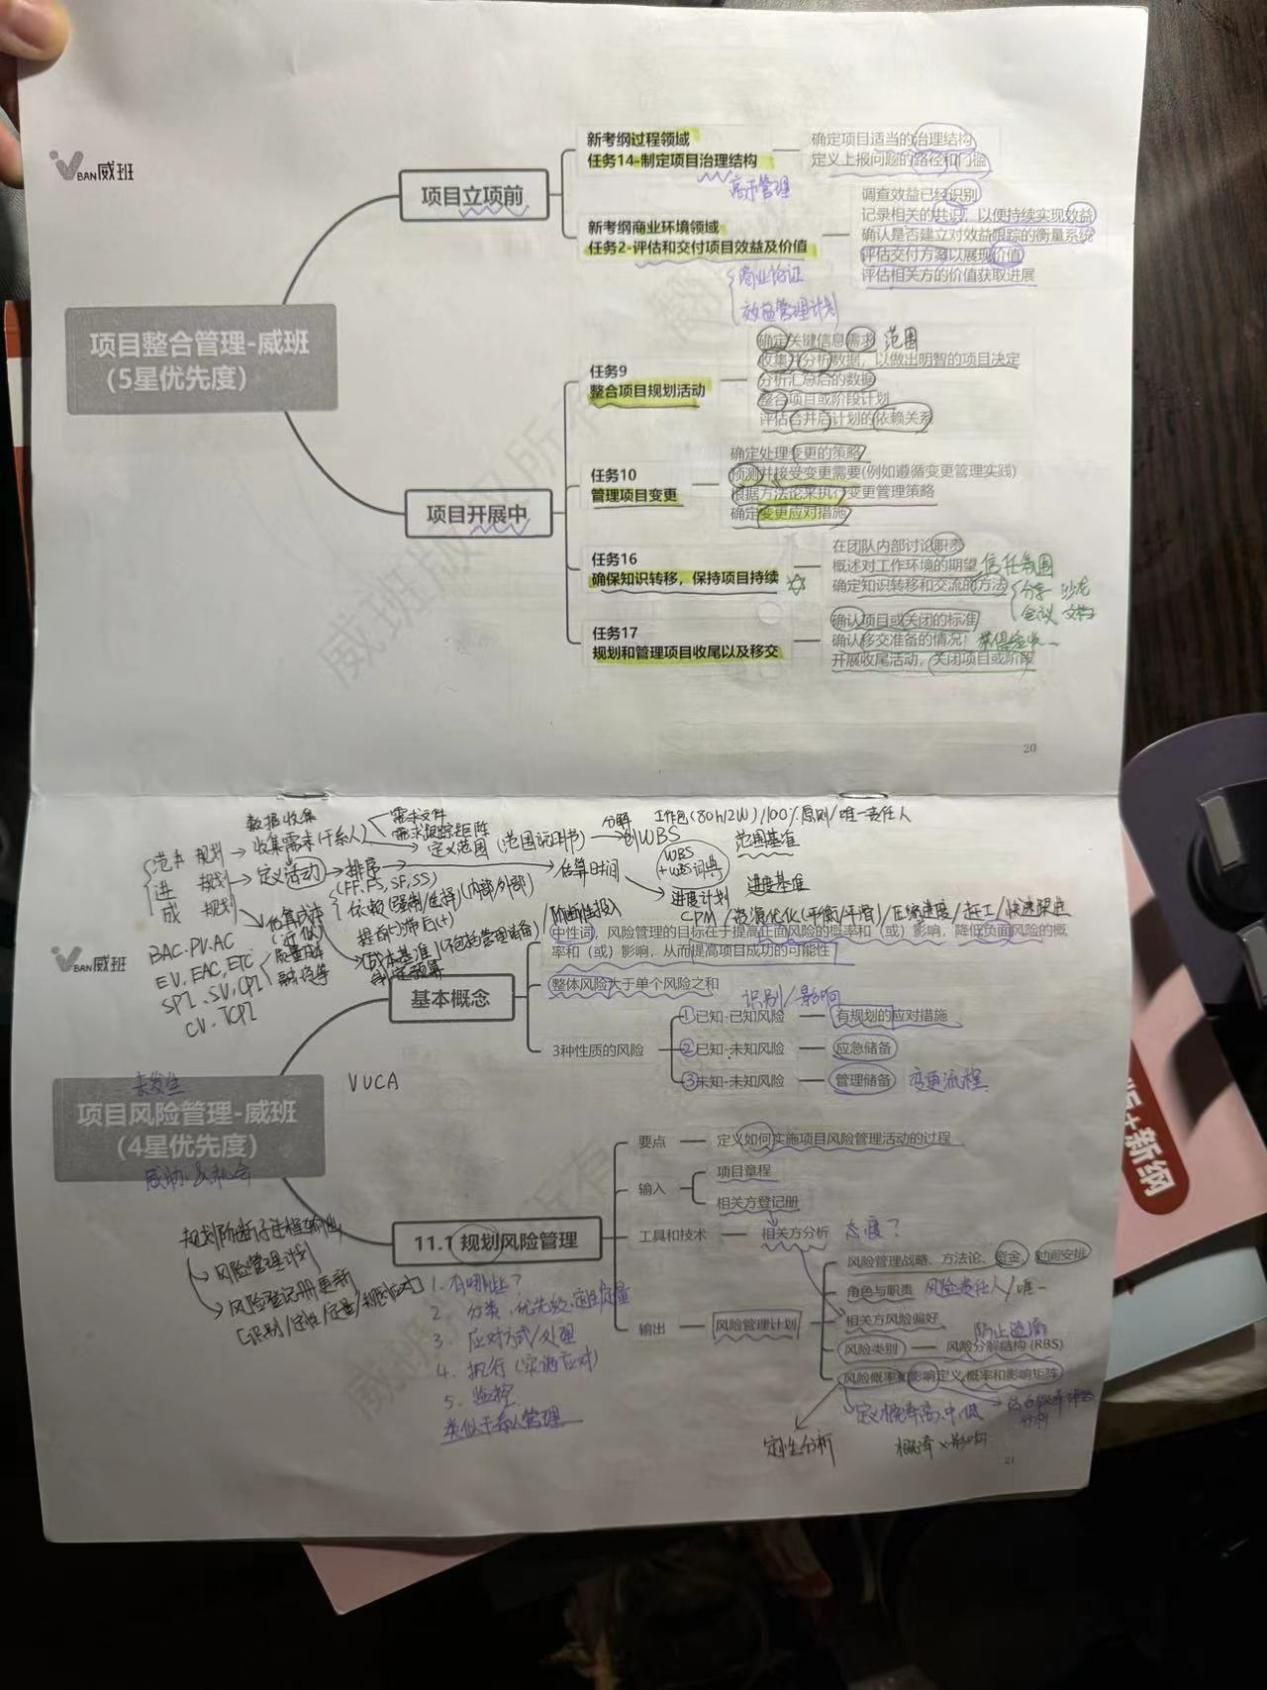 VBAN威班
新考纲过程领域
任务14-制定项目治理结构
确定项目适当的治理结构
定义上报问题的路径和门槛
高于管理
项目立项前
新考纲商业环境领域
任务2-评估和交付项目效益及价值
调查效益已经识别
记录相关的共识，以便持续实现效益
确认是否建立对效益跟踪的衡量系统
评估交付方案以展现价值
评估相关方的价值获取进展
商业论证
效益管理计划
项目整合管理-威班
（5星优先度）
任务9
整合项目规划活动
确定关键信息需求 范围
收集并分析数据，以做出明智的项目决定
分析汇总后的数据
整合项目或阶段计划
评估合并后计划的依赖关系
项目开展中
任务10
管理项目变更
确定处理变更的策略
预测并接受变更需要(例如遵循变更管理实践)
根据方法论来执行变更管理策略
确定变更应对措施
任务16
确保知识转移，保持项目持续
在团队内部讨论职责
概述对工作环境的期望 信任氛围
确定知识转移和交流的方法
分享 沙龙
会议 文档
任务17
规划和管理项目收尾以及移交
确认项目或关闭的标准
确认移交准备的情况
开展收尾活动，关闭项目或阶段
威班版权所有
20
数据收集
需求文件
需求跟踪矩阵
分解 工作包(80h/2W)/100%原则/唯一责任人
范围 规划→收集需求(干系人)
定义范围(范围说明书)→创WBS
WBS
+WBS词典
范围基准
进 规划→定义活动→排序→估算时间
进度计划 进度基准
(FF,FS,SF,SS)
成 规划
估算成本
依赖(强制/选择)(内部/外部)
提前(-)滞后(+)
CPM/资源优化(平衡/平滑)/压缩进度/赶工/快速跟进
BAC.PV.AC
EV、EAC、ETC
SPI、SV、CPI
CV、TCPI
质量成本
成本基准(不包括管理储备)
制定预算
VBAN威班
基本概念
中性词，风险管理的目标在于提高正面风险的概率和（或）影响，降低负面风险的概
率和（或）影响，从而提高项目成功的可能性
整体风险大于单个风险之和
识别/影响
3种性质的风险
①已知-已知风险 有规划的应对措施
②已知-未知风险 应急储备
③未知-未知风险 管理储备 变更流程
未发生
VUCA
项目风险管理-威班
（4星优先度）
威胁·及机会
11.1 规划风险管理
要点 定义如何实施项目风险管理活动的过程
输入
项目章程
相关方登记册
工具和技术 相关方分析 态度？
输出 风险管理计划
风险管理战略、方法论、资金、时间安排
角色与职责 风险责任人/唯一
相关方风险偏好
防止遗漏
风险类别 风险分解结构 (RBS)
风险概率和影响定义,概率和影响矩阵
定义概率高、中、低
概率×影响
定性分析
规划阶段子过程输出
风险管理计划
风险登记册更新
[识别/定性/定量/规划应对]
1. 有哪些？
2. 分类、优先级、定性定量
3. 应对方式/处理
4. 执行(实施应对)
5. 监控
类似干系人管理
21